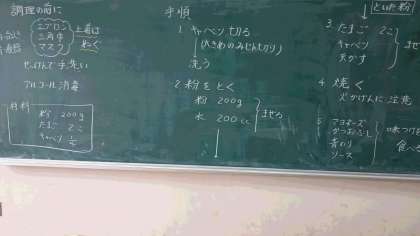 調理の前に
エプロン
三角巾
マスク
上着は
ぬぐ
せっけんで手洗い
アルコール消毒
材料
粉 200g
たまご 2こ
キャベツ 1/2
手順
1. キャベツ切る
(大きめのみじん切り)
洗う
2. 粉をとく
粉 200g
水 200cc
まぜる
といた粉
3. たまご 2こ
キャベツ
天かす
まぜ
4. 焼く
火かげんに注意
5
マヨネーズ
かつおぶし
青のり
ソース
食べる